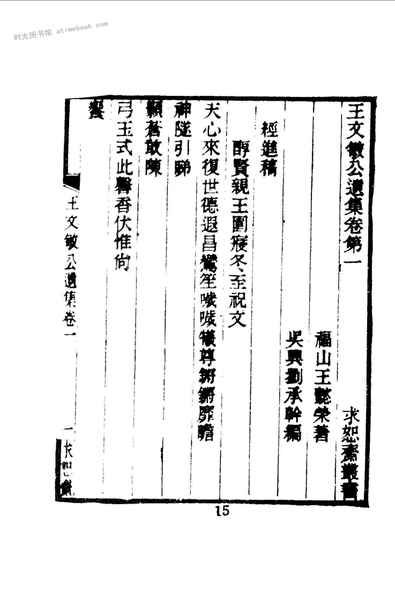 时光图书馆
王文敏公遺集卷第一
求恕齋叢書
福山王懿榮著
吳興劉承幹編
經進稿
醇賢親王園寢冬至祝文
天心來復世德遐昌鸞笙噦噦犧尊將將靡瞻
神隧引睇
顥蒼敢陳
弓玉式此馨香伏惟尚
饗
王文敏公遺集卷一
一
求恕齋
15